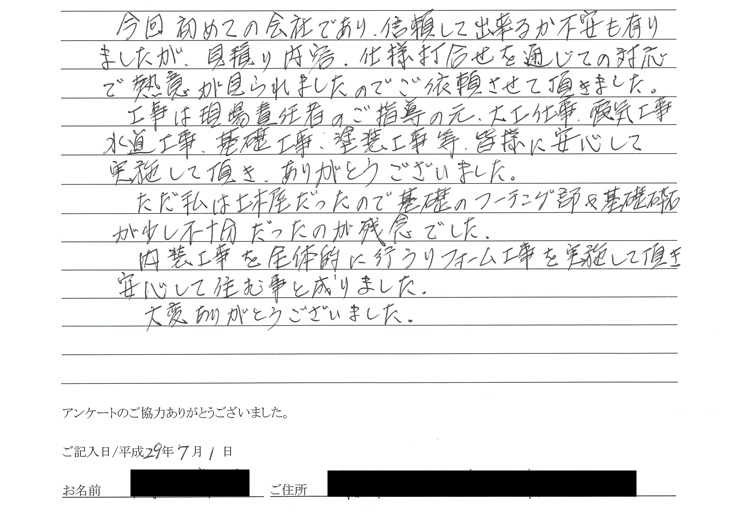 今回初めての会社であり、信頼して出来るか不安も有り
ましたが、見積り内容、仕様打合せを通じての対応
で熱意が見られましたのでご依頼させて頂きました。
工事は現場責任者のご指導の元、大工仕事、電気工事
水道工事、基礎工事、塗装工事等、皆様に安心して
実施して頂き、ありがとうございました。
ただ私は土木屋だったので基礎のフーチング部や基礎砕石
が少し不十分だったのが残念でした。
内装工事を全体的に行うリフォーム工事を実施して頂き
安心して住む事と成りました。
大変ありがとうございました。
アンケートのご協力ありがとうございました。
ご記入日/平成29年7月1日
お名前 ご住所